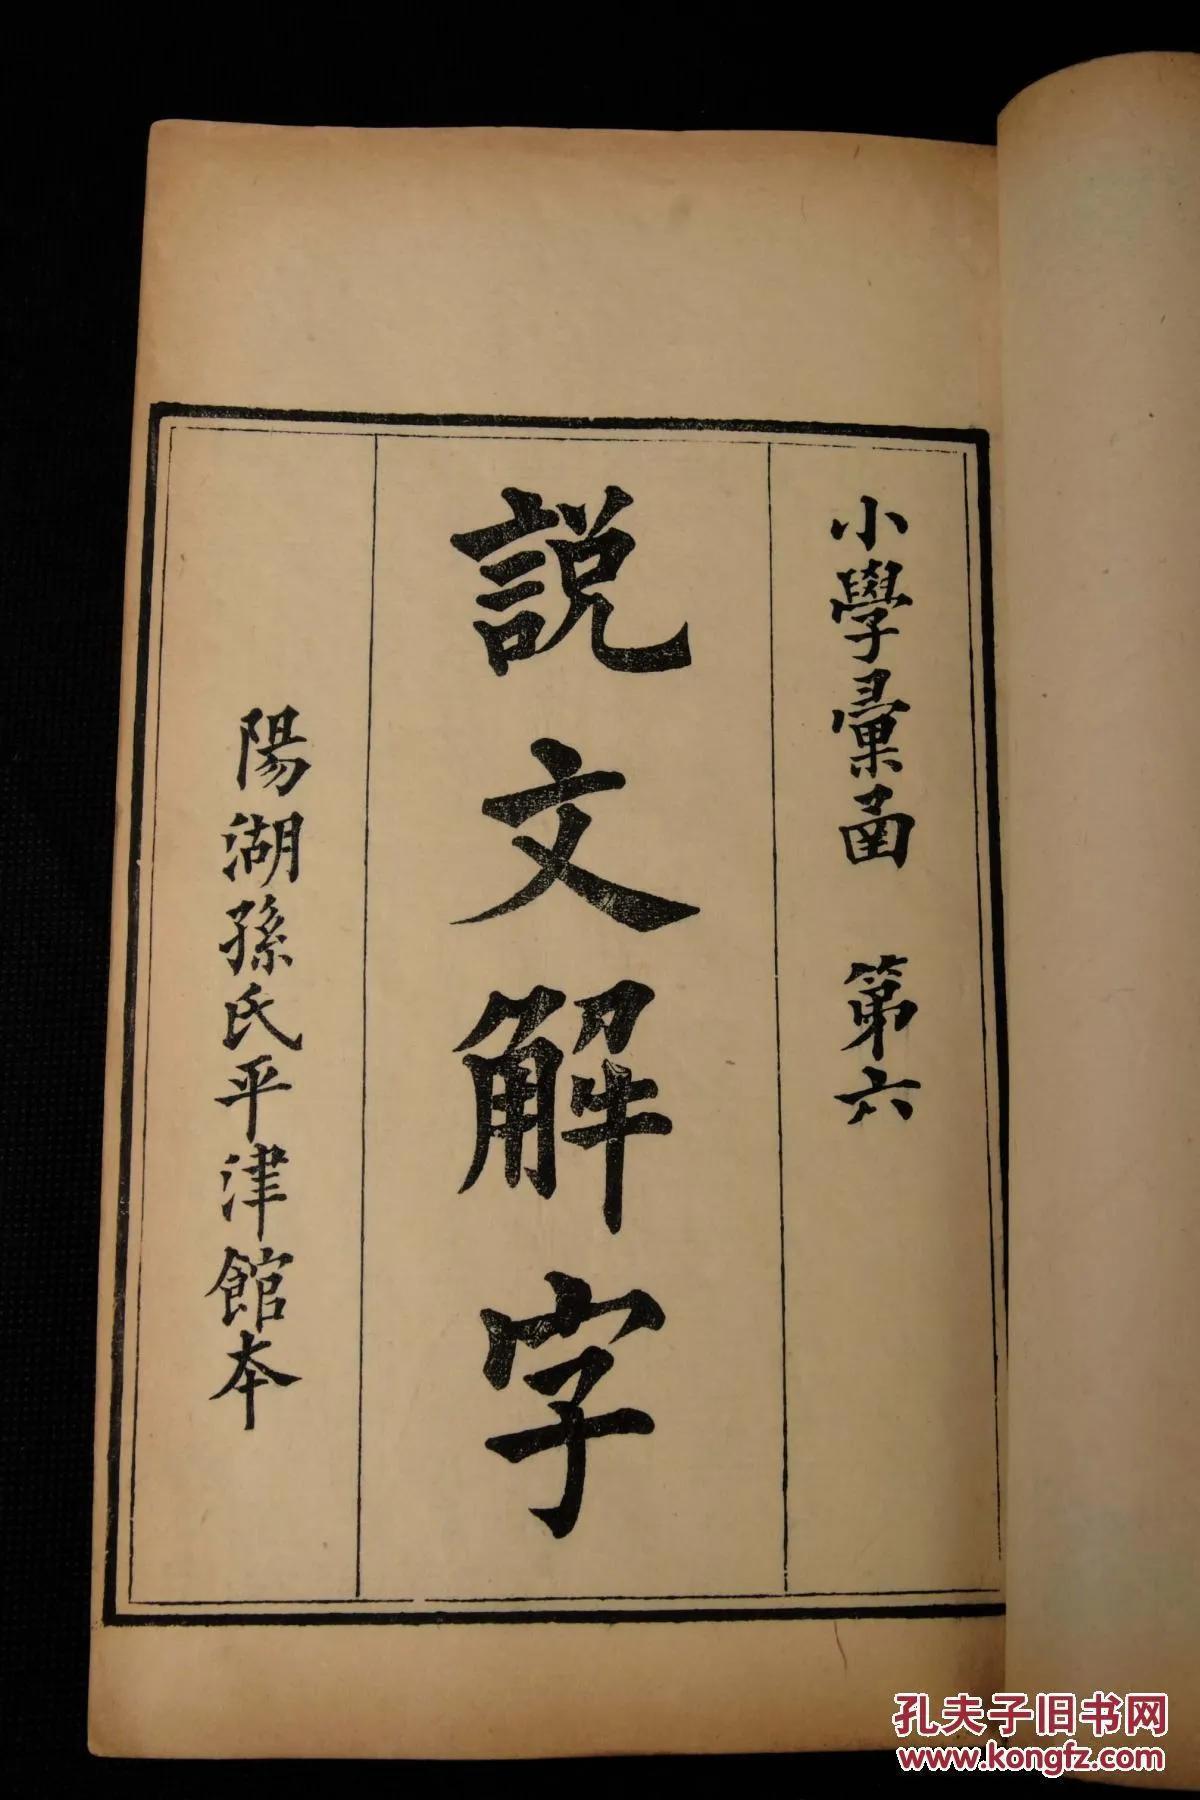 小學彙函　第六
說文解字
陽湖孫氏平津館本
孔夫子旧书网
www.kongfz.com